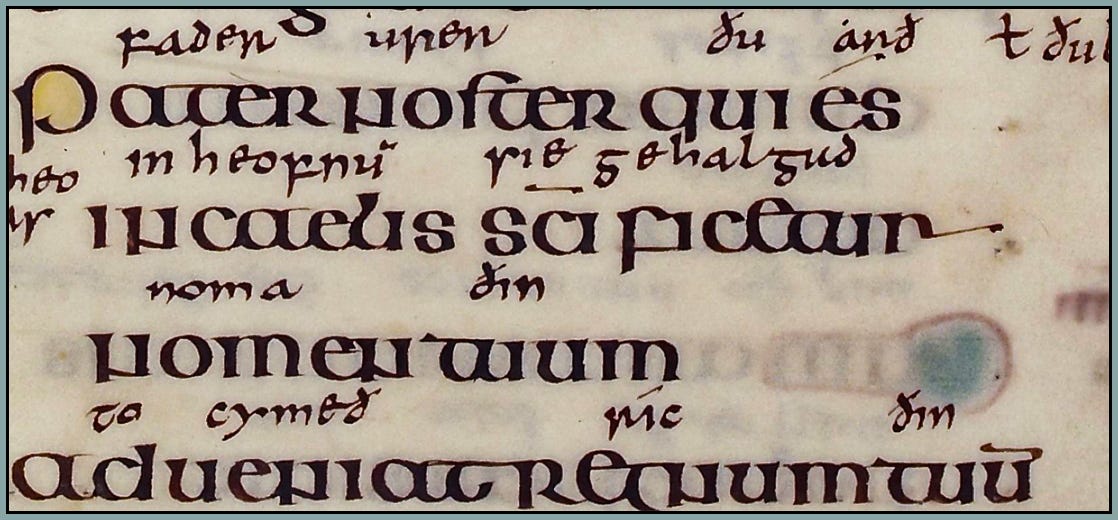 fader urer ðu arð ł ðu
Pater noster qui es
heo
in heofnū sie gehalgud
in caelis sc̄ificetur
noma ðin
nomen tuum
to cymeð ric ðin
adueniat regnum tuū